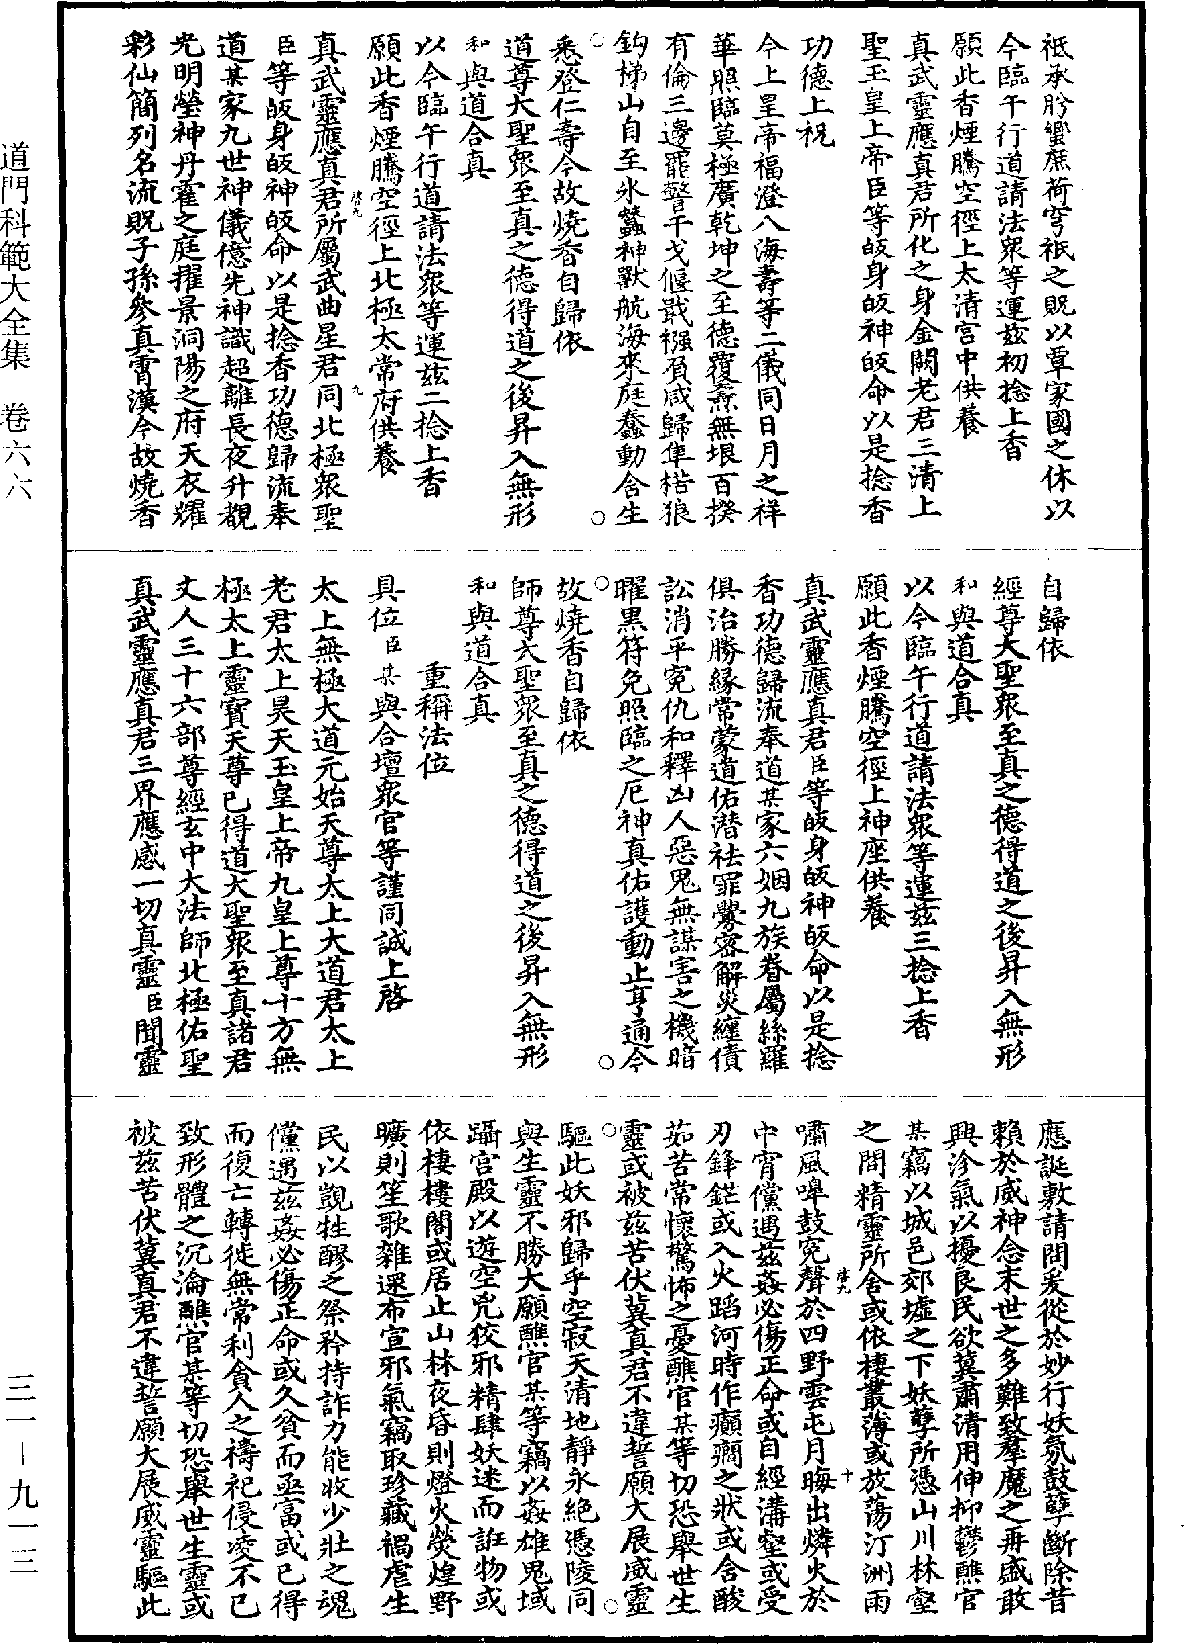 道門科範大全集　卷六六
三一－九一三
祗承肹蠁庶荷穹祇之貺以覃家國之休以
今臨午行道請法衆等運兹初捻上香
願此香煙騰空徑上太清宮中供養
真武靈應真君所化之身金闕老君三清上
聖玉皇上帝臣等皈身皈神皈命以是捻香
功德上祝
今上皇帝福澄八海壽等二儀同日月之祥
華照臨莫極廣乾坤之至德覆燾無垠百揆
有倫三邊罷警干戈偃戢襁負咸歸隼楛狼
鈎梯山自至氷蠶神獸航海來庭蠢動含生
悉登仁壽今故燒香自歸依
道尊大聖衆至真之德得道之後昇入無形
和與道合真
以今臨午行道請法衆等運兹二捻上香
願此香煙騰空徑上北極太常府供養
真武靈應真君所屬武曲星君同北極衆聖
臣等皈身皈神皈命以是捻香功德歸流奉
道某家九世神儀億先神識超離長夜升覩
光明瑩神丹霍之庭擢景洞陽之府天衣耀
彩仙簡列名流貺子孫參真霄漢今故燒香
自歸依
經尊大聖衆至真之德得道之後昇入無形
和與道合真
以今臨午行道請法衆等運兹三捻上香
願此香煙騰空徑上神座供養
真武靈應真君臣等皈身皈神皈命以是捻
香功德歸流奉道某家六姻九族眷屬絲羅
俱治勝緣常蒙道佑潜袪罪釁密解災纏債
訟消平寃仇和釋凶人惡鬼無謀害之機暗
曜黑符免照臨之厄神真佑護動止亨通今
故燒香自歸依
師尊大聖衆至真之德得道之後昇入無形
和與道合真
重稱法位
具位臣某與合壇衆官等謹同誠上啓
太上無極大道元始天尊太上大道君太上
老君太上昊天玉皇上帝九皇上尊十方無
極太上靈寶天尊已得道大聖衆至真諸君
丈人三十六部尊經玄中大法師北極佑聖
真武靈應真君三界應感一切真靈臣聞靈
應誕敷請問爰從於妙行妖氛鼓孽斷除昔
賴於威神念末世之多難致羣魔之再盛敢
興沴氣以擾良民欲冀肅清用伸抑鬱醮官
某竊以城邑郊墟之下妖孽所憑山川林壑
之間精靈所舍或依棲叢薄或放蕩汀洲雨
嘯風嘷鼓寃聲於四野雲屯月晦出燐火於
中宵儻遇兹姦必傷正命或自經溝壑或受
刃鋒鋩或入火蹈河時作癲癎之狀或含酸
茹苦常懷驚怖之憂醮官某等切恐舉世生
靈或被兹苦伏冀真君不違誓願大展威靈
驅此妖邪歸乎空寂天清地靜永絶憑陵同
與生靈不勝大願醮官某等竊以姦雄鬼域
躡宮殿以遊空兇狡邪精肆妖迷而誑物或
依棲樓閣或居止山林夜昏則燈火熒煌野
曠則笙歌雜遝布宣邪氣竊取珍藏禍虐生
民以覬牲醪之祭矜持詐力能收少壯之魂
儻遇兹姦必傷正命或久貧而亟富或已得
而復亡轉徙無常利貪人之禱祀侵凌不已
致形體之沉淪醮官某等切恐舉世生靈或
被兹苦伏冀真君不違誓願大展威靈驅此